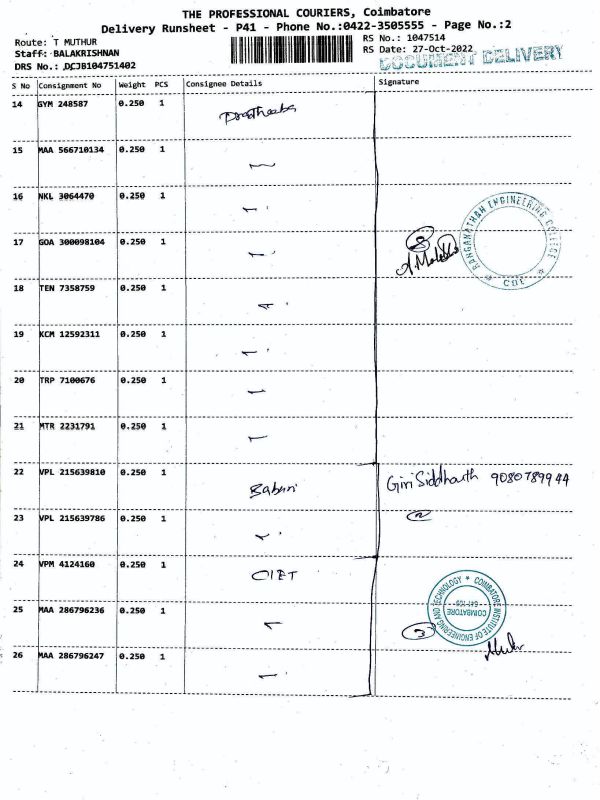 THE PROFESSIONAL COURIERS, Coimbatore
Delivery Runsheet - P41 - Phone No.:0422-3505555 - Page No.:2
Route: T MUTHUR
RS No.: 1047514
Staff: BALAKRISHNAN
RS Date: 27-Oct-2022
DRS No.: DCJB104751402
DOCUMENT DELIVERY
S No Consignment No Weight PCS Consignee Details Signature
14 GYM 248587 0.250 1
15 MAA 566710134 0.250 1
16 NKL 3064470 0.250 1
RANGANATHAN ENGINEERING COLLEGE * CBE *
17 GOA 300098104 0.250 1 8
18 TEN 7358759 0.250 1
19 KCM 12592311 0.250 1
20 TRP 7100676 0.250 1
21 MTR 2231791 0.250 1
22 VPL 215639810 0.250 1 Giri Siddharth 9080789944
23 VPL 215639786 0.250 1 2
24 VPM 4124160 0.250 1 CIET
COIMBATORE INSTITUTE OF ENGINEERING AND TECHNOLOGY * COIMBATORE
25 MAA 286796236 0.250 1 3
26 MAA 286796247 0.250 1